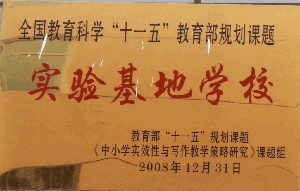 全国教育科学“十一五”教育部规划课题
实验基地学校
教育部“十一五”规划课题
《中小学实效性与写作教学策略研究》课题组
2008年12月31日